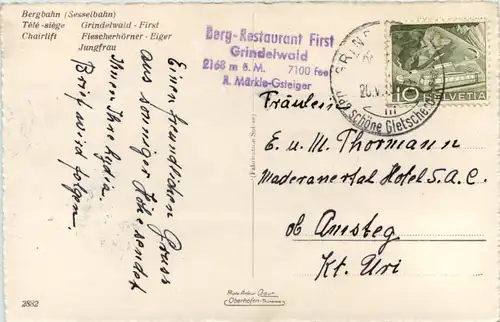 Bergbahn (Sesselbahn)
Télé-siège Grindelwald - First
Chairlift Fiescherhörner - Eiger
Jungfrau
Berg-Restaurant First
Grindelwald
2168 m ü. M. 7100 fee
R. Märkle-Gsteiger
10 HELVETIA
GRIND
20.V
III
das schöne Gletscherd
Einen freundlichen Gruss
aus sonniger Höhe sendet
Ihnen Ihre Lydia.
Brief wird folgen.
Fräulein
E. u. M. Thormann
Maderanertal Hotel S.A.C.
ob Amsteg
Kt. Uri
2882
Oberhofen